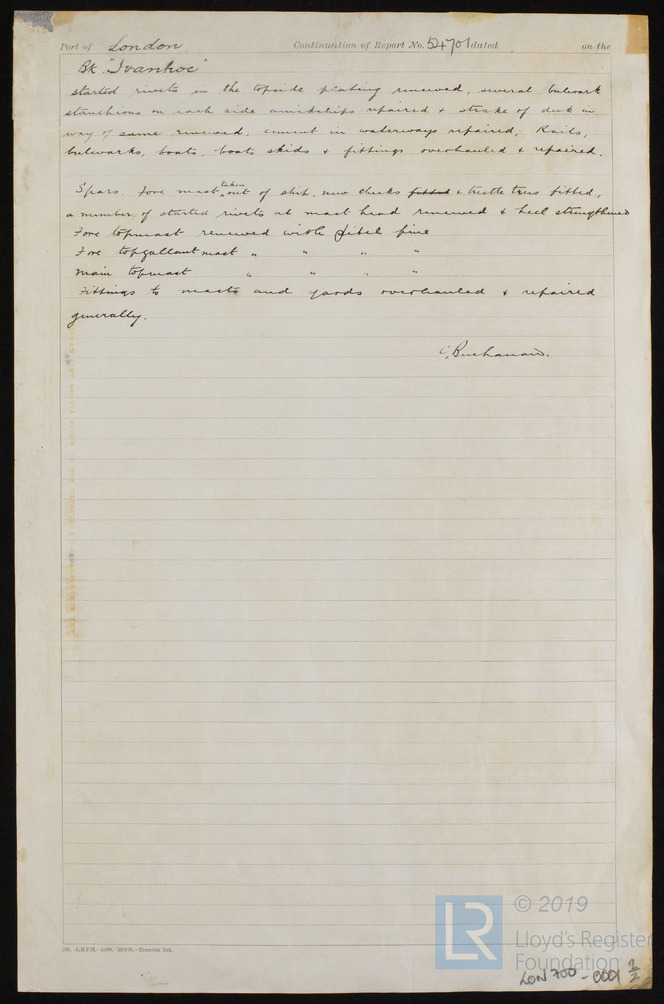 Port of London. Continuation of Report No. 54701 dated on the
Bk. "Ivanhoe"
started rivets in the topside plating renewed, several bulwark
stanchions on each side amidships repaired & strake of deck in
way of same renewed, cement in waterways repaired, Rails,
bulwarks, boats, boats skids & fittings overhauled & repaired.
Spars. Fore mast taken out of ship, new cheeks fitted & trestle trees fitted,
a number of started rivets at mast head renewed & heel strengthened
Fore topmast renewed with pitch pine
Fore topgallant mast " " " "
Main topmast " " " "
Fittings to masts and yards overhauled & repaired
generally.
C. Buchanan.
© 2019
LR
Lloyd's Register
Foundation
-L.R.P.H.- -Transfer Ink.
LON 700 - 0001